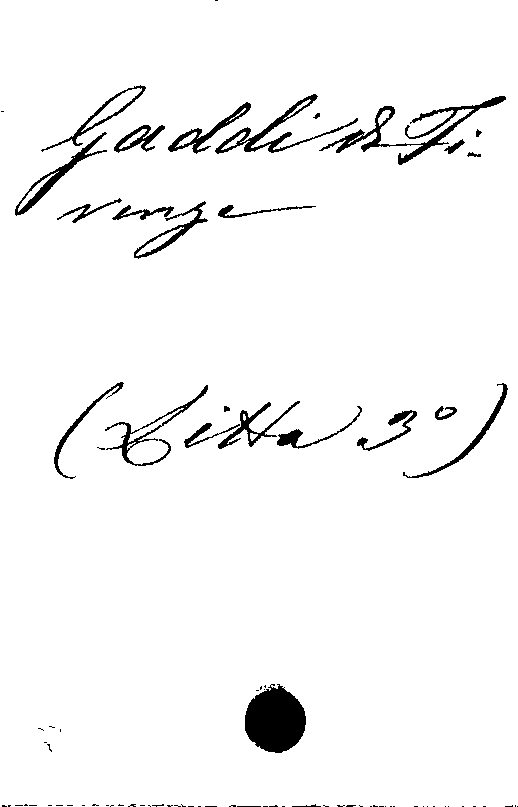 Gaddi di Fi-
renze
(Litta 3º)